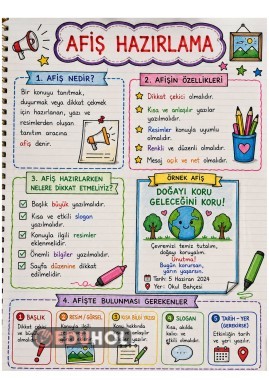 AFİŞ HAZIRLAMA
1. AFİŞ NEDİR?
Bir konuyu tanıtmak,
duyurmak veya dikkat çekmek
için hazırlanan, yazı ve
resimlerden oluşan
tanıtım aracına
afiş denir.
2. AFİŞİN ÖZELLİKLERİ
Dikkat çekici olmalıdır.
Kısa ve anlaşılır yazılar
yazılmalıdır.
Resimler konuyla uyumlu
olmalıdır.
Renkli ve düzenli olmalıdır.
Mesaj açık ve net olmalıdır.
3. AFİŞ HAZIRLARKEN
NELERE DİKKAT ETMELİYİZ?
Başlık büyük yazılmalıdır.
Kısa ve etkili slogan
yazılmalıdır.
Konuyla ilgili resimler
eklenmelidir.
Önemli bilgiler yazılmalıdır.
Sayfa düzenine dikkat
edilmelidir.
ÖRNEK AFİŞ
DOĞAYI KORU
GELECEĞİNİ KORU!
Çevremizi temiz tutalım,
doğayı koruyalım.
Unutma!
Bugün korursan,
yarın yaşarsın.
Tarih: 5 Haziran 2024
Yer: Okul Bahçesi
4. AFİŞTE BULUNMASI GEREKENLER
1 BAŞLIK
Dikkat çekici
2 RESİM / GÖRSEL
Konuyla ilgili
3 KISA BİLGİ YAZISI
Konu hakkında
4 SLOGAN
Kısa, akılda
kalıcı ve
etkili olmalıdır.
5 TARİH - YER
(GEREKİRSE)
Etkinliğin tarih
ve yeri yazılır.
EDUHOL